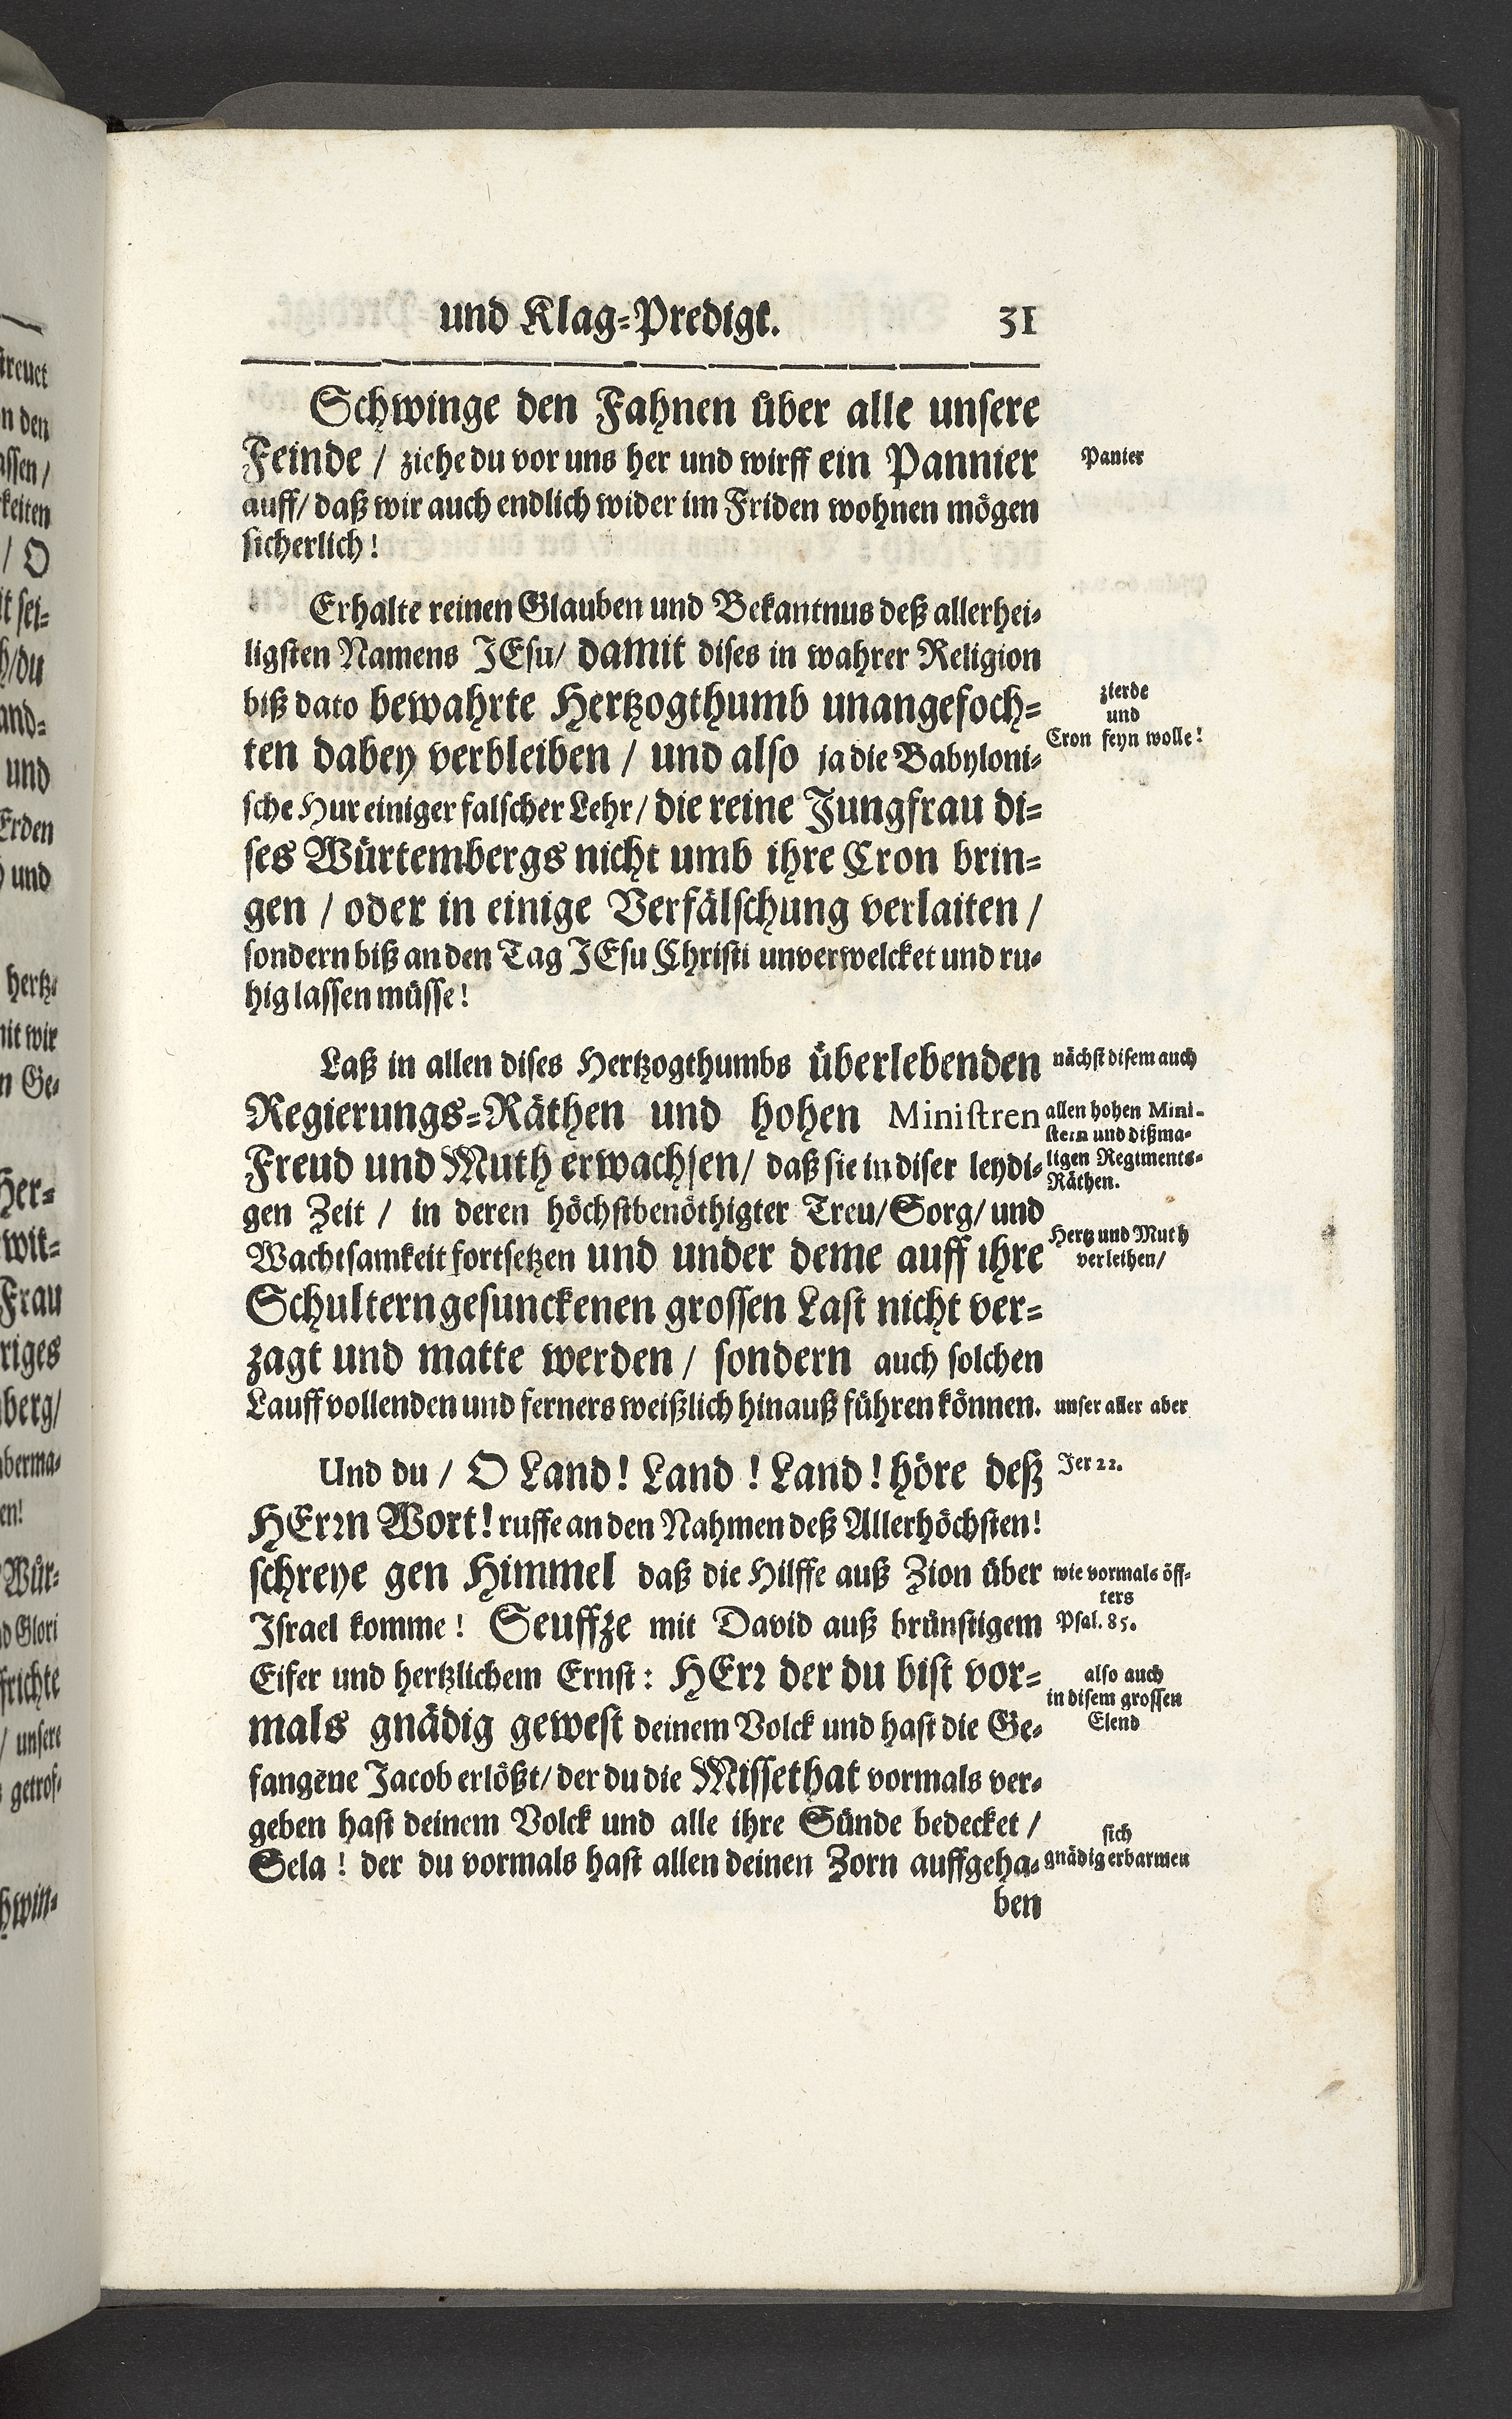 und Klag-Predigt. 31
Schwinge den Fahnen über alle unsere
Feinde / ziehe du vor uns her und wirff ein Pannier
auff / daß wir auch endlich wider im Friden wohnen mögen
sicherlich!
Erhalte reinen Glauben und Bekantnus deß allerhei-
ligsten Namens JEsu / damit dises in wahrer Religion
biß dato bewahrte Hertzogthumb unangefoch-
ten dabey verbleiben / und also ja die Babyloni-
sche Hur einiger falscher Lehr / die reine Jungfrau di-
ses Würtembergs nicht umb ihre Cron brin-
gen / oder in einige Verfälschung verlaiten /
sondern biß an den Tag JEsu Christi unverwelcket und ru-
hig lassen müsse!
Laß in allen dises Hertzogthumbs überlebenden
Regierungs-Räthen und hohen Ministren
Freud und Muth erwachsen / daß sie in diser leydi-
gen Zeit / in deren höchstbenöthigter Treu / Sorg / und
Wachtsamkeit fortsetzen und under deme auff ihre
Schultern gesunckenen grossen Last nicht ver-
zagt und matte werden / sondern auch solchen
Lauff vollenden und ferners weißlich hinauß führen können.
Und du / O Land! Land! Land! höre deß
HErrn Wort! ruffe an den Nahmen deß Allerhöchsten!
schreye gen Himmel daß die Hilffe auß Zion über
Israel komme! Seuffze mit David auß brünstigem
Eifer und hertzlichem Ernst: HErr der du bist vor-
mals gnädig gewest deinem Volck und hast die Ge-
fangene Jacob erlößt / der du die Missethat vormals ver-
geben hast deinem Volck und alle ihre Sünde bedecket /
Sela! der du vormals hast allen deinen Zorn auffgeha-
ben
Panier
zierde
und
Cron seyn wolle!
nächst disem auch
allen hohen Mini-
stern und dißma-
ligen Regiments-
Räthen.
Hertz und Muth
verleihen /
unser aller aber
Jer 22.
wie vormals öff-
ters
Psal. 85.
also auch
in disem grossen
Elend
sich
gnädig erbarmen